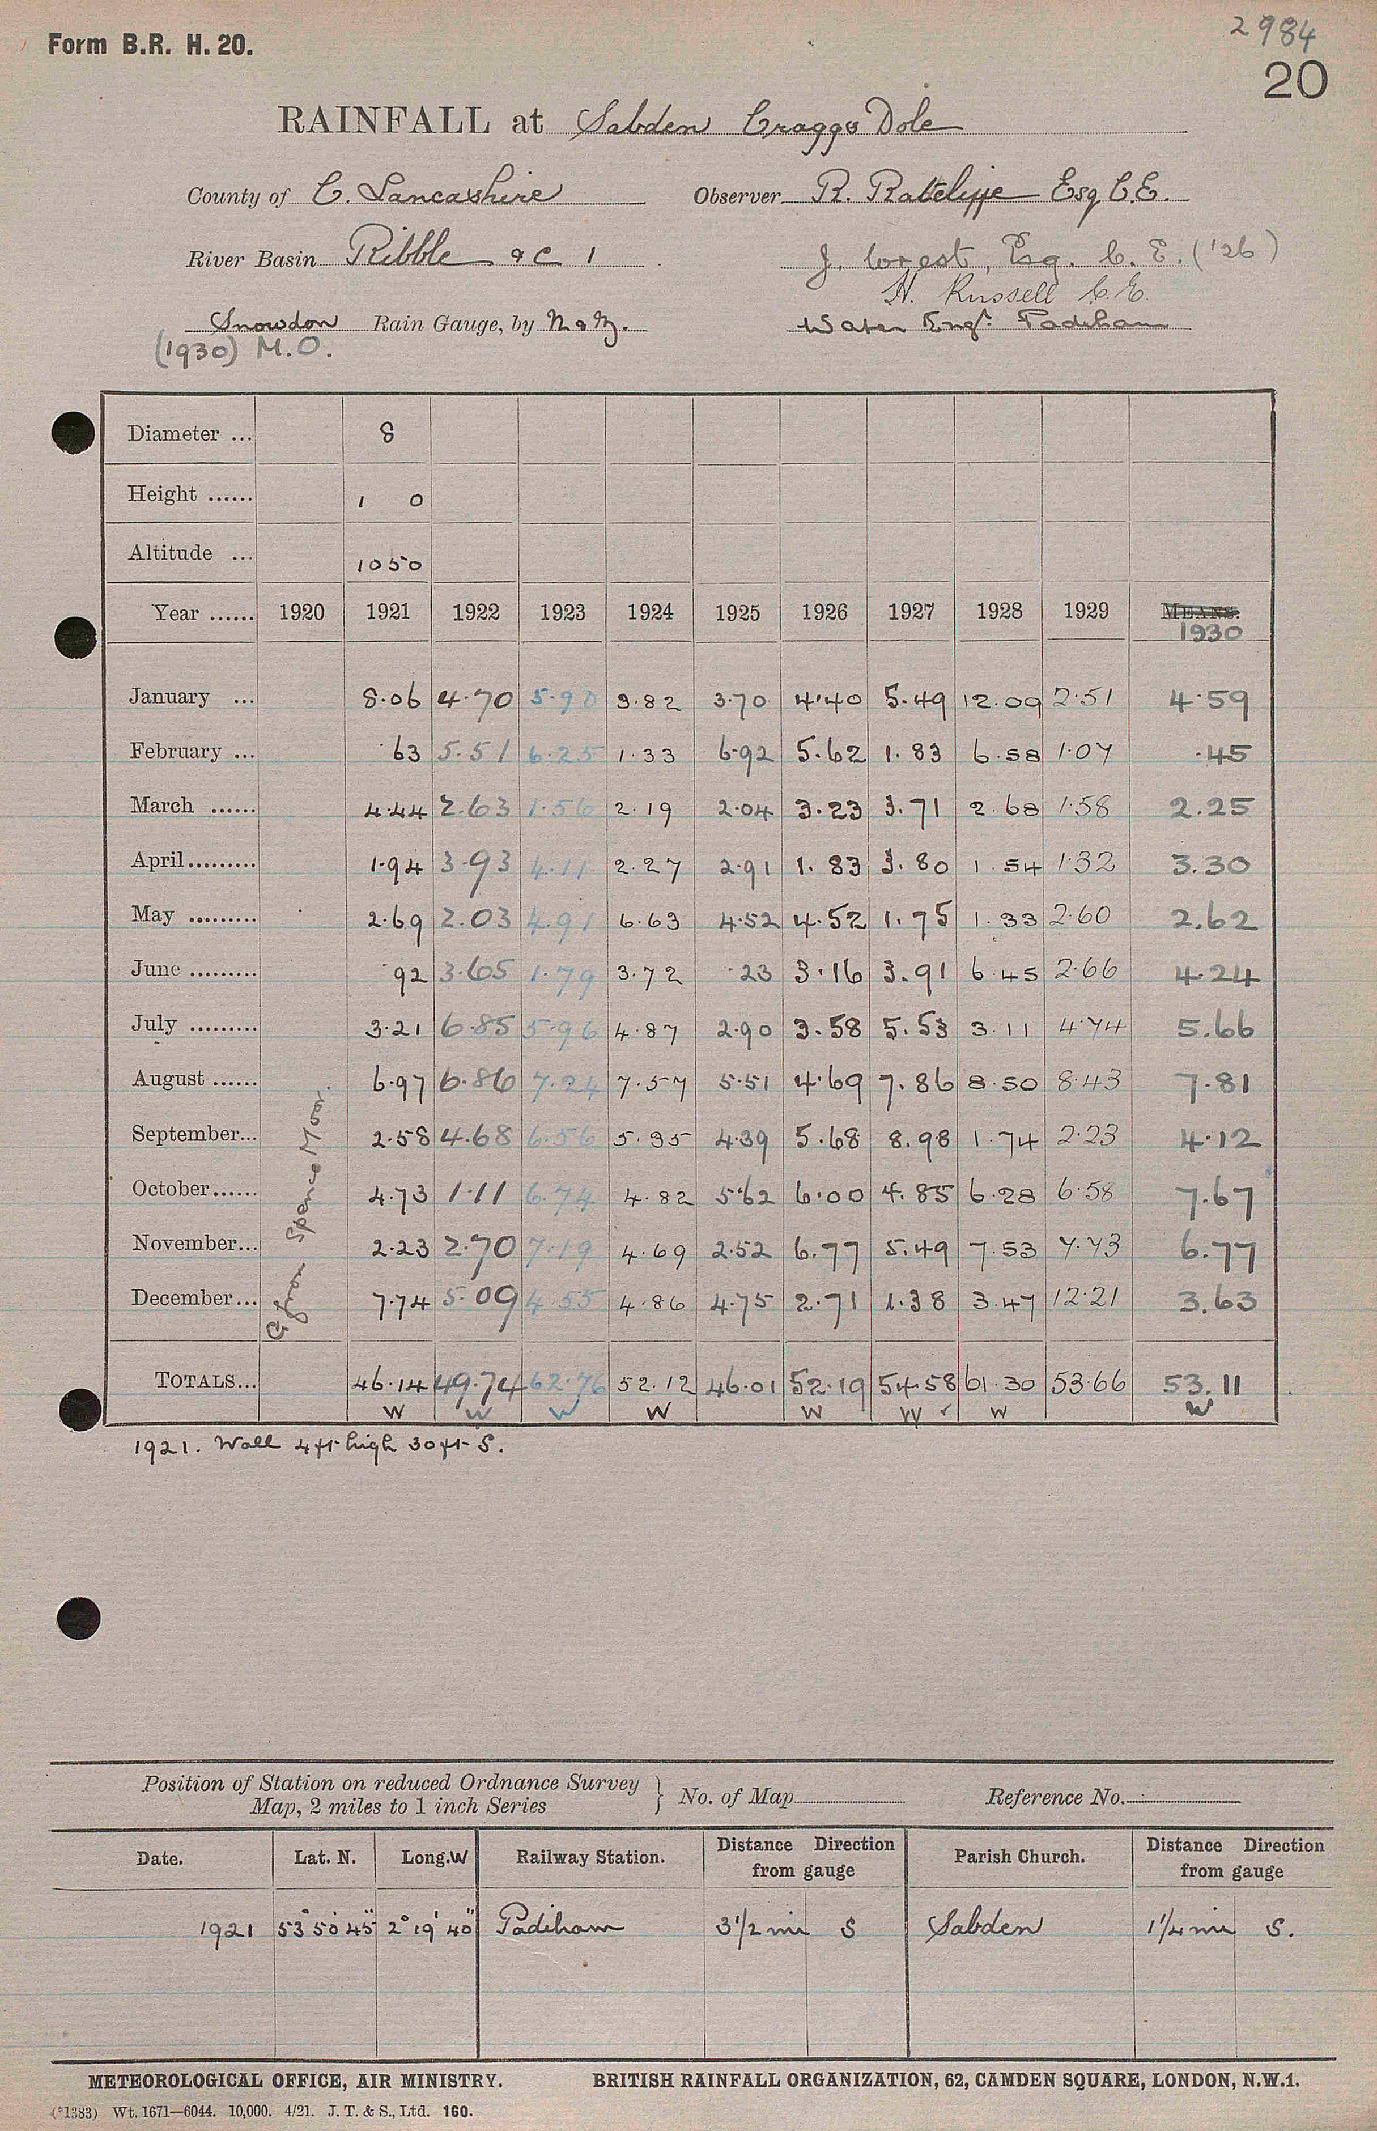 Form B.R. H. 20.
2984
20
RAINFALL at Sabden Craggs Dole
County of C. Lancashire Observer R. Ratcliffe Esq C.E.
River Basin Ribble &c 1 J. Forest, Esq. C. E. ('26)
H. Russell C.E.
Snowdon Rain Gauge, by N & Z. Water Engr. Padiham
(1930) M.O.
Diameter ... 8
Height ...... 1 0
Altitude ... 1050
Year ...... 1920 1921 1922 1923 1924 1925 1926 1927 1928 1929 MEANS.
1930
January ... 8.06 4.70 5.90 3.82 3.70 4.40 5.49 12.09 2.51 4.59
February ... .63 5.51 6.25 1.33 6.92 5.62 1.83 6.58 1.07 .45
March ...... 4.44 2.63 1.56 2.19 2.04 3.23 3.71 2.68 1.58 2.25
April......... 1.94 3.93 4.11 2.27 2.91 1.83 3.80 1.54 1.32 3.30
May ......... 2.69 2.03 4.91 6.63 4.52 4.52 1.75 1.33 2.60 2.62
June ......... .92 3.65 1.79 3.72 .23 3.16 3.91 6.45 2.66 4.24
July ......... 3.21 6.85 5.96 4.87 2.90 3.58 5.53 3.11 4.74 5.66
August ...... 6.97 6.86 7.24 7.57 5.51 4.69 7.86 8.50 8.43 7.81
September... 2.58 4.68 6.56 5.35 4.39 5.68 8.98 1.74 2.23 4.12
October...... 4.73 1.11 6.74 4.82 5.62 6.00 4.85 6.28 6.58 7.67
November... 2.23 2.70 7.19 4.69 2.52 6.77 5.49 7.53 7.73 6.77
December... 7.74 5.09 4.55 4.86 4.75 2.71 1.38 3.47 12.21 3.63
C. from Spence Moor.
TOTALS... 46.14 49.74 62.76 52.12 46.01 52.19 54.58 61.30 53.66 53.11
W W W W W W ✓ W W
1921. Wall 4 ft high 30 ft S.
Position of Station on reduced Ordnance Survey Map, 2 miles to 1 inch Series } No. of Map Reference No.
Date. Lat. N. Long. W Railway Station. Distance Direction from gauge Parish Church. Distance Direction from gauge
1921 53° 50' 45" 2° 19' 40" Padiham 3 1/2 mi S Sabden 1 1/4 mi S.
METEOROLOGICAL OFFICE, AIR MINISTRY. BRITISH RAINFALL ORGANIZATION, 62, CAMDEN SQUARE, LONDON, N.W.1.
(*1383) Wt. 1671—6044. 10,000. 4/21. J. T. & S., Ltd. 160.